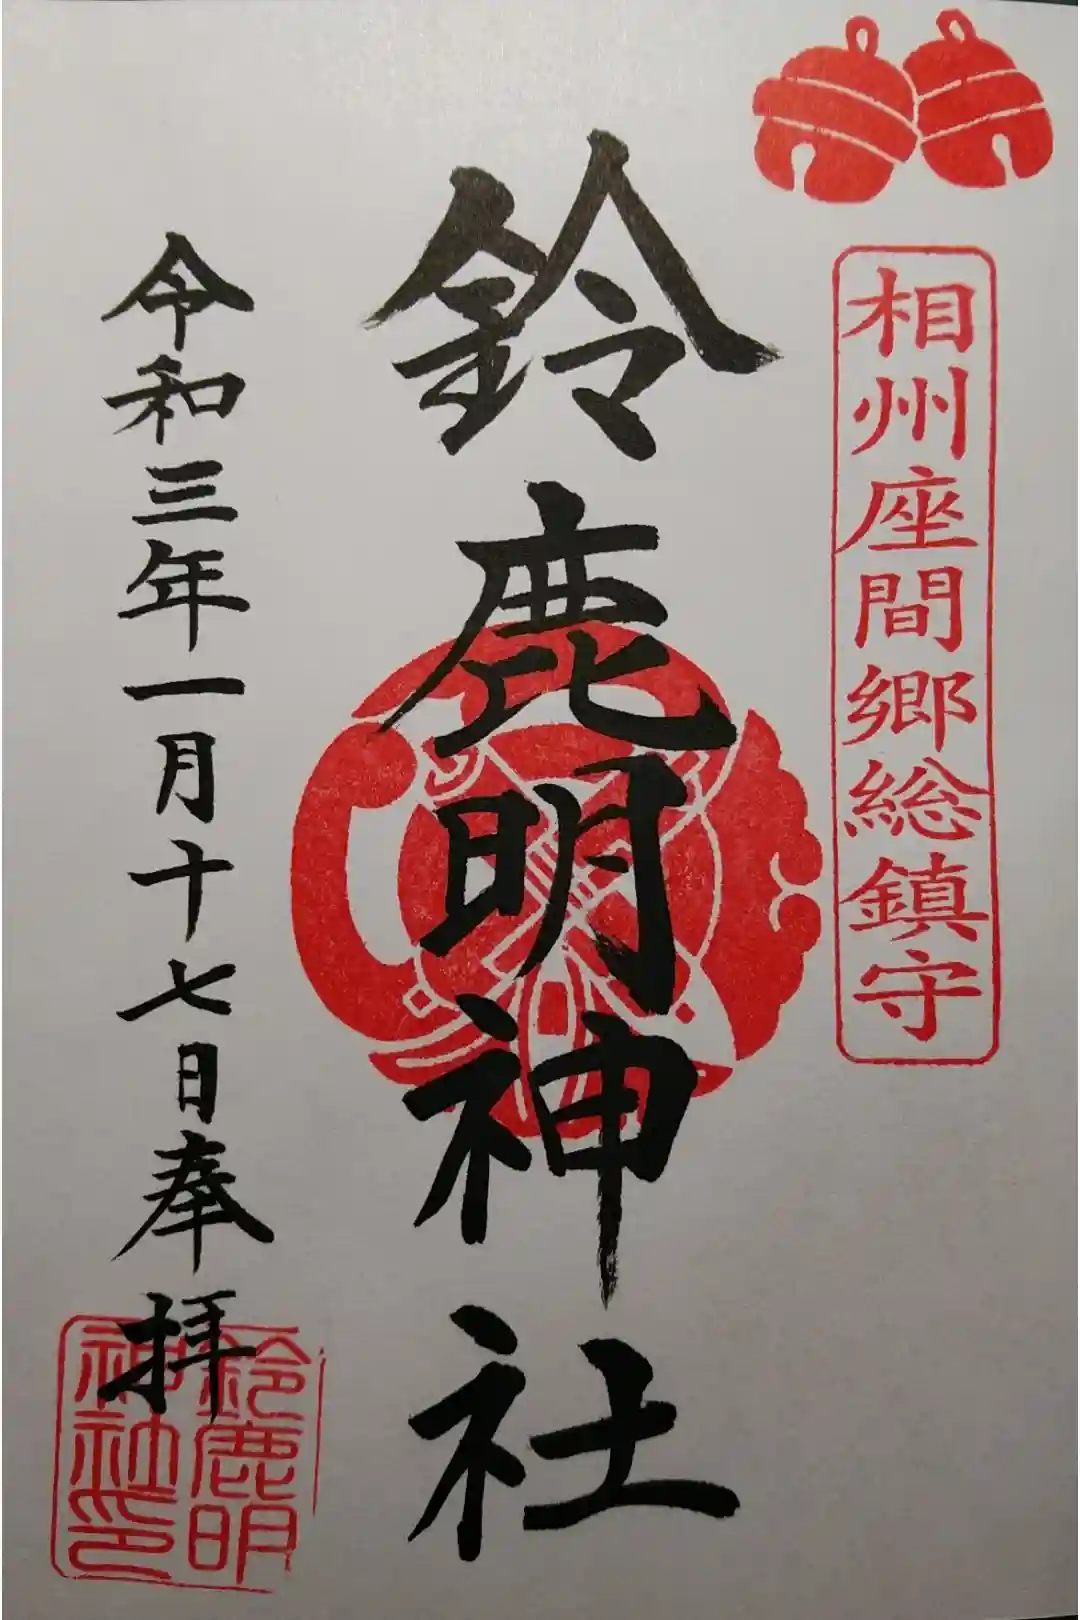 相州座間郷総鎮守
鈴鹿明神社
令和三年一月十七日奉拝
鈴鹿明
神社印